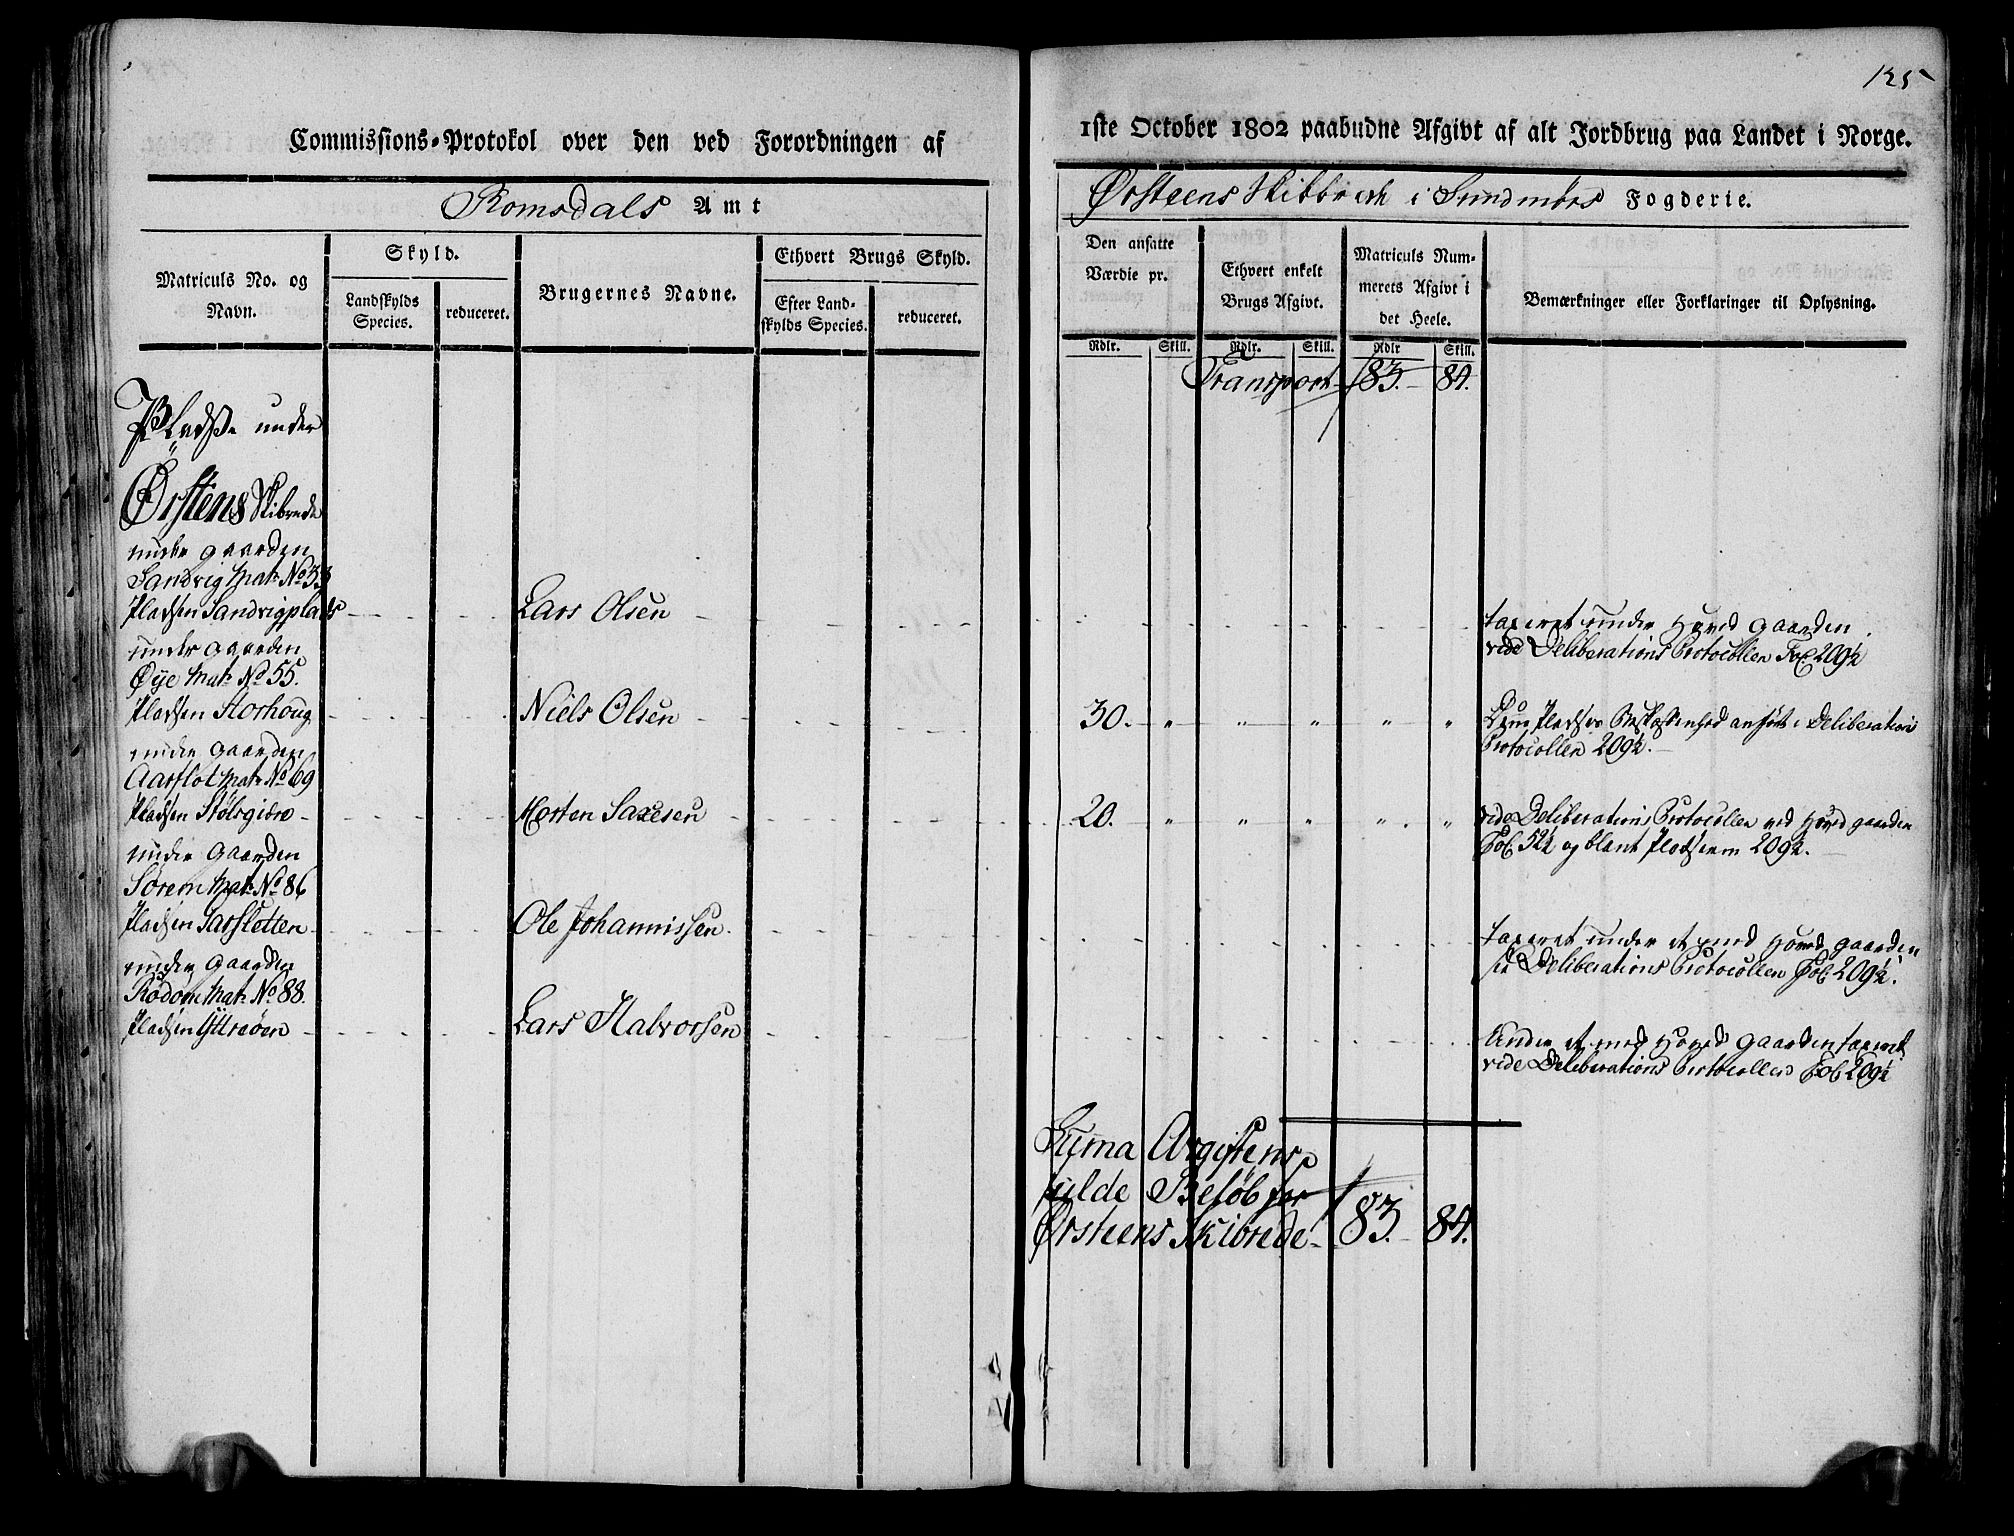 125
Commissions-Protokol over den ved Forordningen af
1ste October 1802 paabudne Afgivt af alt Jordbrug paa Landet i Norge.
Romsdals Amt
Ørsteens Skibbrede i Sundmørs Fogderie.
Matriculs No. og Navn.
Skyld.
Landskylds Species.
reduceret.
Brugernes Navne.
Ethvert Brugs Skyld.
Efter Landskylds Species.
reduceret.
Den ansatte Værdie pr.
Ethvert enkelt Brugs Afgivt.
Matriculs Nummerets Afgivt i det Heele.
Bemærkninger eller Forklaringer til Oplysning.
Rdlr. Skill. Rdlr. Skill. Rdlr Skill.
Transport 183. 84.
Pladse under
Ørstens Skibrede
under gaarden
Sandvig Mat: No 33
Pladsen Sandvigplads Lars Olsen taxeret under Hoved gaarden
vide Deliberations Protocollen Fol 209½
under gaarden
Øye Mat: No 55.
Pladsen Storhoug Niels Olsen 30. " " " " " Denne Pladses Beskaffenhed anført i Deliberations
Protocollen 209½.
under gaarden
Aarflot Mat: No 69
Pladsen Stølsgibro Morten Saxesen 20. " " " " " vide Deliberations Protocollen ved Hoved gaarden
Fol 52½ og blant Pladserne 209½.
under gaarden
Sørem Mat: No 86
Pladsen Sarsletten Ole Johannissen taxeret under et med Hoved gaarden
se Deliberations Protocollen Fol 209½.
under gaarden
Rødøm Mat: No 88.
Pladsen Yttreøen Lars Halvorsen Under et med Hoved gaarden taxeret
vide Deliberations Protocollens Fol 209½
Suma Avgiftens
fulde Beløb for
Ørsteens Skibrede 183. 84.